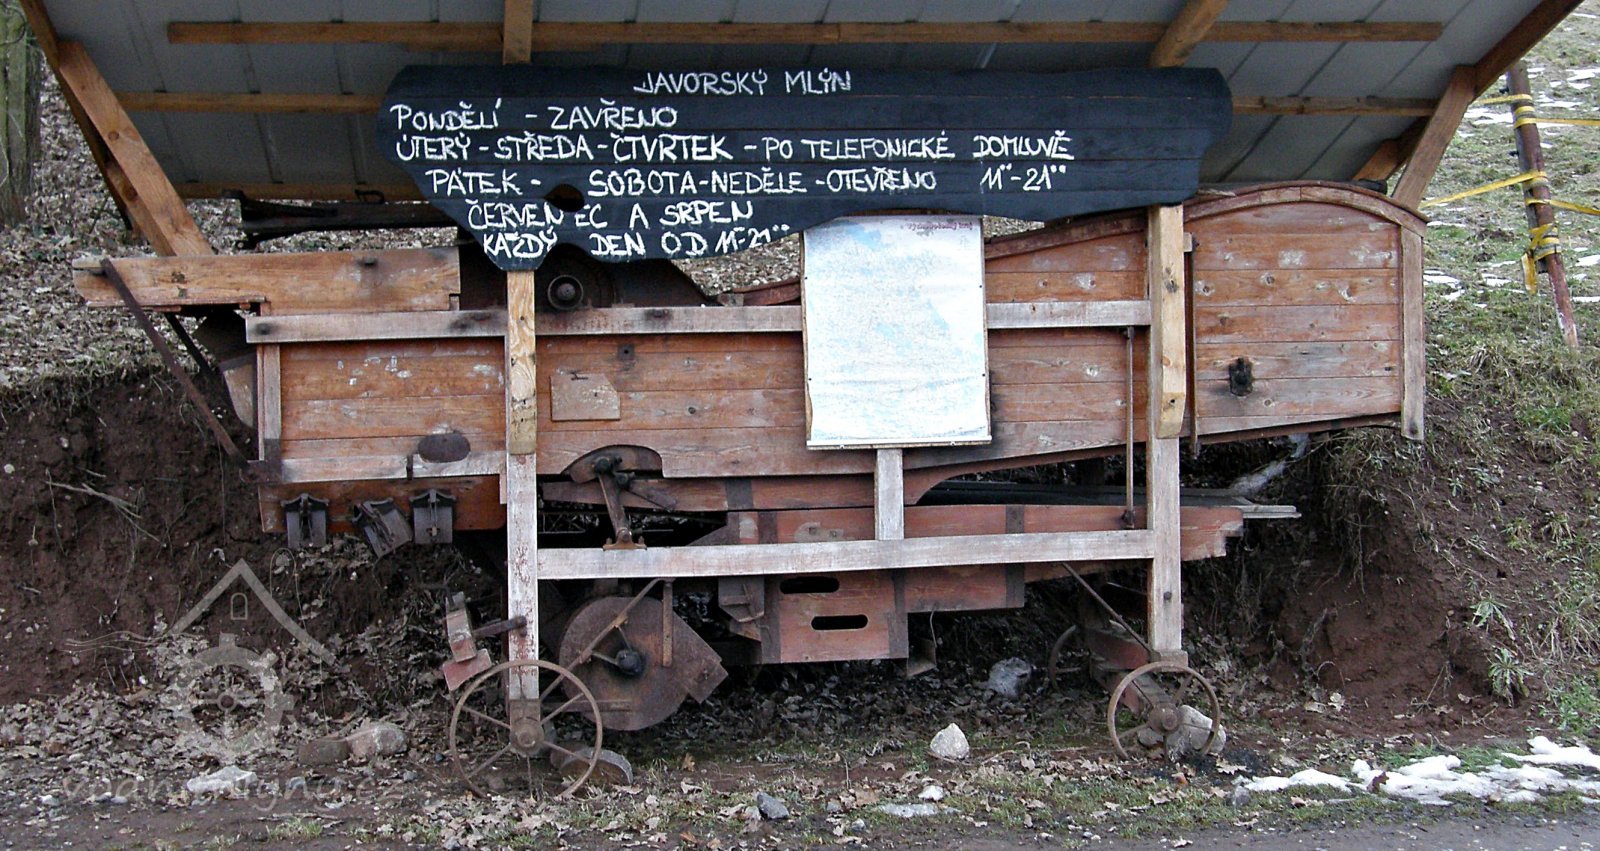 JAVORSKÝ MLÝN
PONDĚLÍ - ZAVŘENO
ÚTERÝ - STŘEDA - ČTVRTEK - PO TELEFONICKÉ DOMLUVĚ
PÁTEK - SOBOTA - NEDĚLE - OTEVŘENO 11°° - 21°°
ČERVENEC A SRPEN
KAŽDÝ DEN OD 11°° - 21°°
vodnimlyny.cz